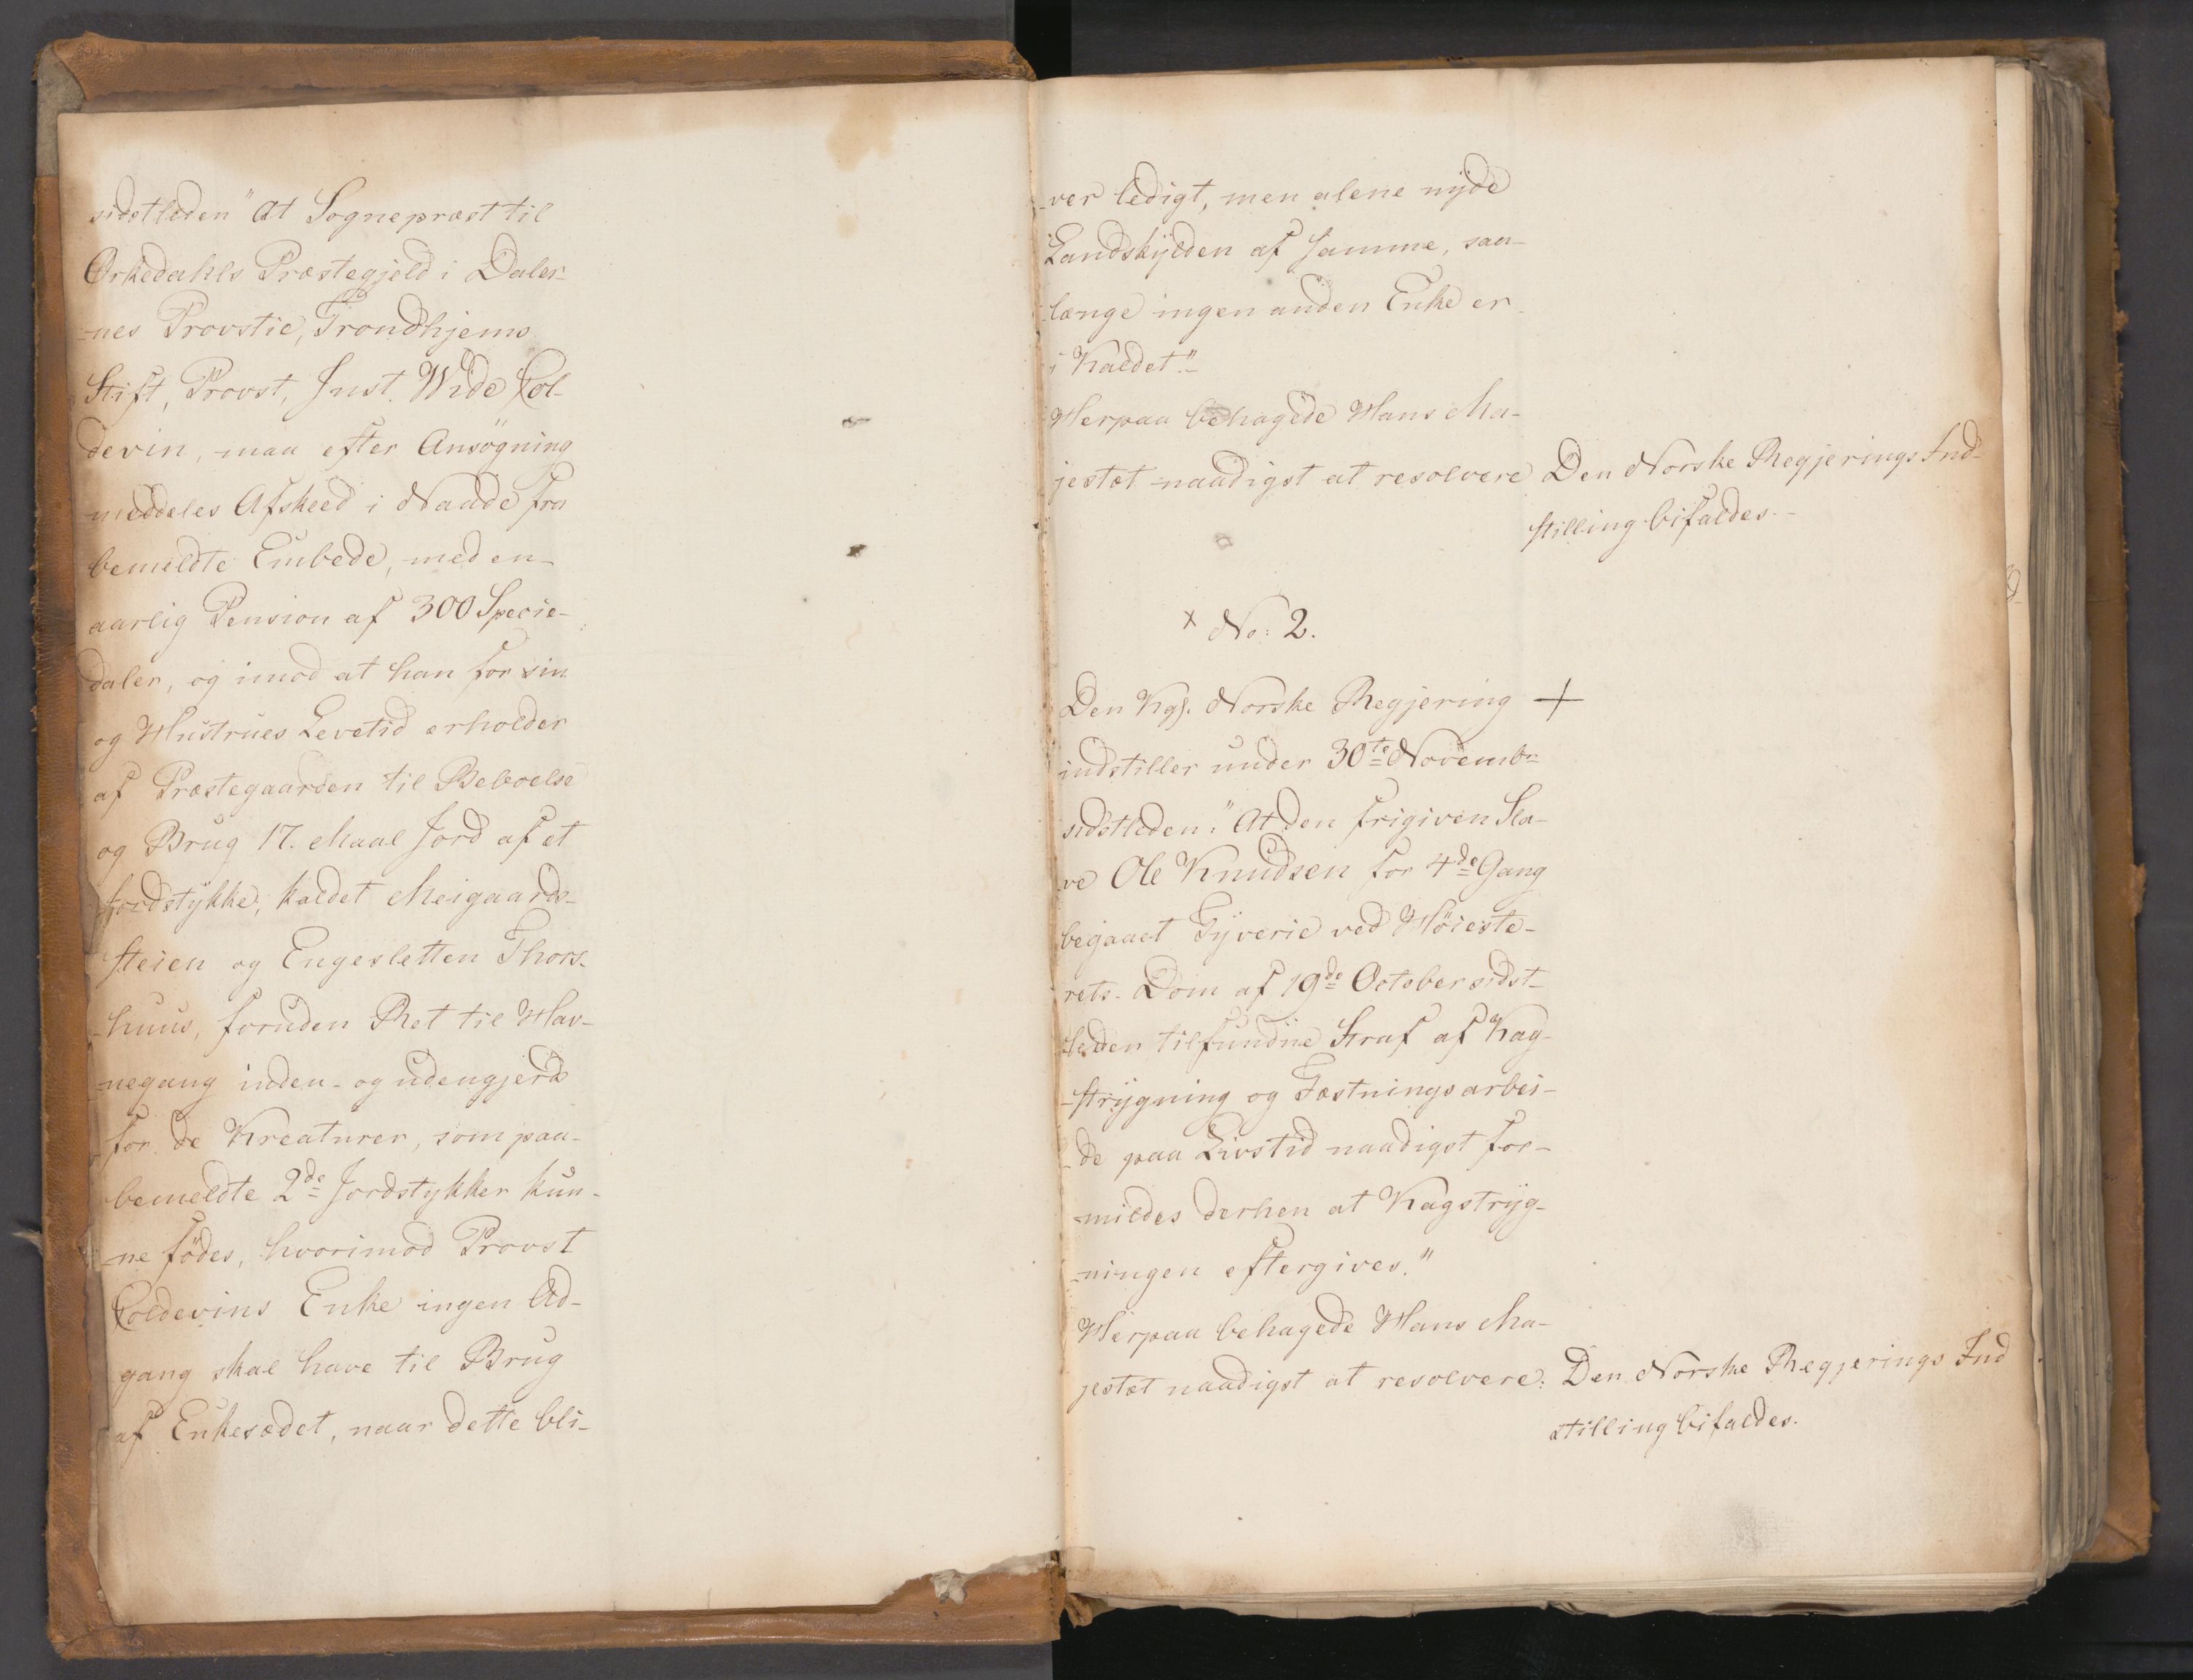 sidstleden "At Sognepræst til
Örkedahls Præstegjeld i Daler-
-nes Provstie, Trondhjems
Stift, Provst, Just. Wide Col-
devin, maa efter Ansögning
meddeles Afskeed i Naade fra
bemeldte Embede, med en
aarlig Pension af 300 Specie-
daler, og imod at han for sin
og Hustrues Levetid erholder
af Præstegaarden til Beboelse
og Brug 17. Maal Jord af et
Jordstykke, kaldet Meigaards-
steien og Engesletten Thors-
-huus, foruden Ret til Hav-
negang inden- og udengjerds
for de Kreaturer, som paa
bemeldte 2de Jordstykker kun-
-ne födes, hvorimod Provst
Coldevins Enke ingen Ad-
gang skal have til Brug
af Enkesædet, naar dette bli-
-ver ledigt, men alene nyde
Landskylden af samme, saa-
længe ingen anden Enke er
i Kaldet."-
Herpaa behagede Hans Ma-
jestæt naadigst at resolvere Den Norske Regjerings Ind-
stilling bifaldes.-
x No: 2.
Den Kgl. Norske Regjering +
indstiller under 30te Novembr
sidstleden: "At den frigiven Sla-
ve Ole Knudsen for 4de Gang
begaaet Tyverie ved Höieste-
rets- Dom af 19de October sidst-
leden tilfundne Straf af Kag-
-strygning og Fæstningsarbei-
-de paa Livstid naadigst for-
-mildes derhen at Kagstryg-
-ningen eftergives."
Herpaa behagede Hans Ma-
jestæt naadigst at resolvere: Den Norske Regjerings Ind
stilling bifaldes.